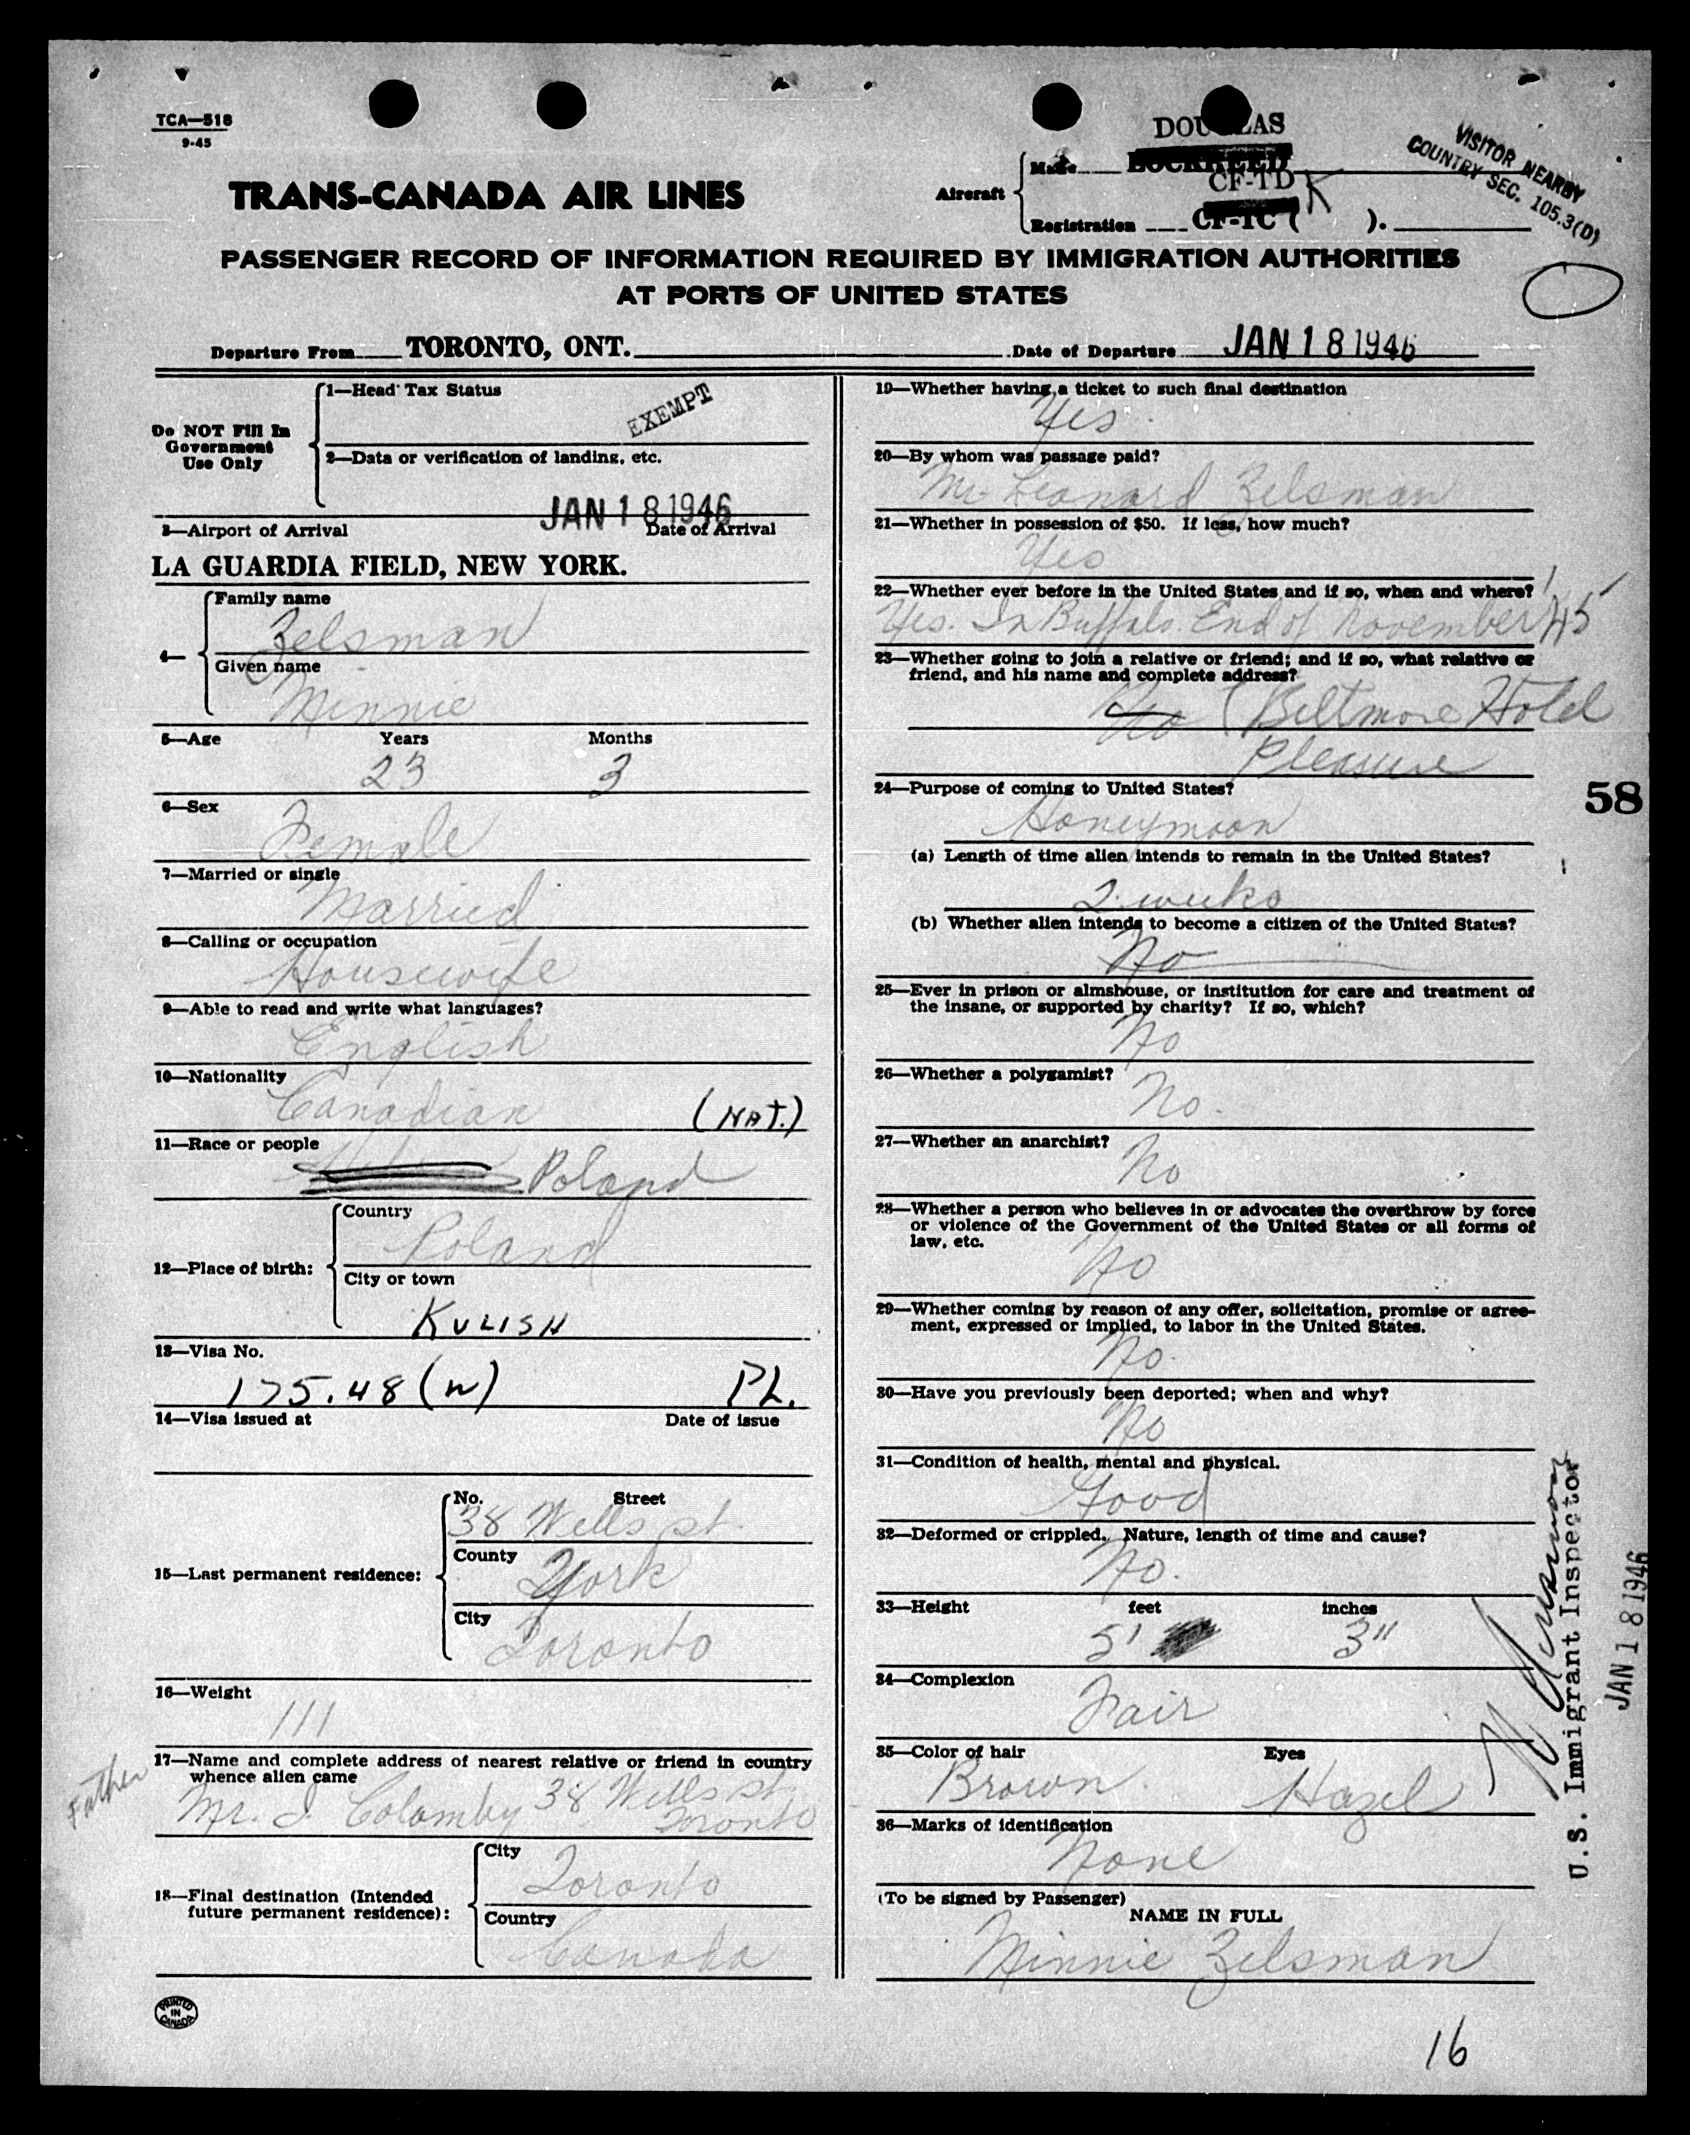 TCA—518
9-45
TRANS-CANADA AIR LINES
DOUGLAS
Aircraft
Made LOCKHEED
CF-TD K
Registration CF-TC ( ).
VISITOR NEARBY
COUNTRY SEC. 105.3(D)
PASSENGER RECORD OF INFORMATION REQUIRED BY IMMIGRATION AUTHORITIES
AT PORTS OF UNITED STATES
Departure From TORONTO, ONT. Date of Departure JAN 18 1946
Do NOT Fill In
Government
Use Only
1—Head Tax Status
EXEMPT
2—Data or verification of landing, etc.
JAN 18 1946
3—Airport of Arrival Date of Arrival
LA GUARDIA FIELD, NEW YORK.
4—
Family name
Zelsman
Given name
Minnie
5—Age Years Months
23 3
6—Sex
Female
7—Married or single
Married
8—Calling or occupation
Housewife
9—Able to read and write what languages?
English
10—Nationality
Canadian (NAT.)
11—Race or people
Poland
12—Place of birth:
Country
Poland
City or town
KULISH
13—Visa No.
175.48 (w) PL.
14—Visa issued at Date of issue
15—Last permanent residence:
No. Street
38 Wells st.
County
York
City
Toronto
16—Weight
111
17—Name and complete address of nearest relative or friend in country
whence alien came
Father
Mr. I. Colomby 38 Wells st.
Toronto
18—Final destination (Intended
future permanent residence):
City
Toronto
Country
Canada
PRINTED
IN
CANADA
19—Whether having a ticket to such final destination
Yes.
20—By whom was passage paid?
Mr Leonard Zelsman
21—Whether in possession of $50. If less, how much?
Yes
22—Whether ever before in the United States and if so, when and where?
Yes. In Buffalo. End of November '45
23—Whether going to join a relative or friend; and if so, what relative or
friend, and his name and complete address?
No (Biltmore Hotel
Pleasure
24—Purpose of coming to United States?
Honeymoon
(a) Length of time alien intends to remain in the United States?
2 weeks
(b) Whether alien intends to become a citizen of the United States?
No
25—Ever in prison or almshouse, or institution for care and treatment of
the insane, or supported by charity? If so, which?
No
26—Whether a polygamist?
No.
27—Whether an anarchist?
No
28—Whether a person who believes in or advocates the overthrow by force
or violence of the Government of the United States or all forms of
law, etc.
No
29—Whether coming by reason of any offer, solicitation, promise or agree-
ment, expressed or implied, to labor in the United States.
No.
30—Have you previously been deported; when and why?
No
31—Condition of health, mental and physical.
Good
32—Deformed or crippled. Nature, length of time and cause?
No.
33—Height feet inches
5' 3"
34—Complexion
Fair
35—Color of hair Eyes
Brown. Hazel
36—Marks of identification
None
(To be signed by Passenger)
NAME IN FULL
Minnie Zelsman
58
U.S. Immigrant Inspector
JAN 18 1946
16